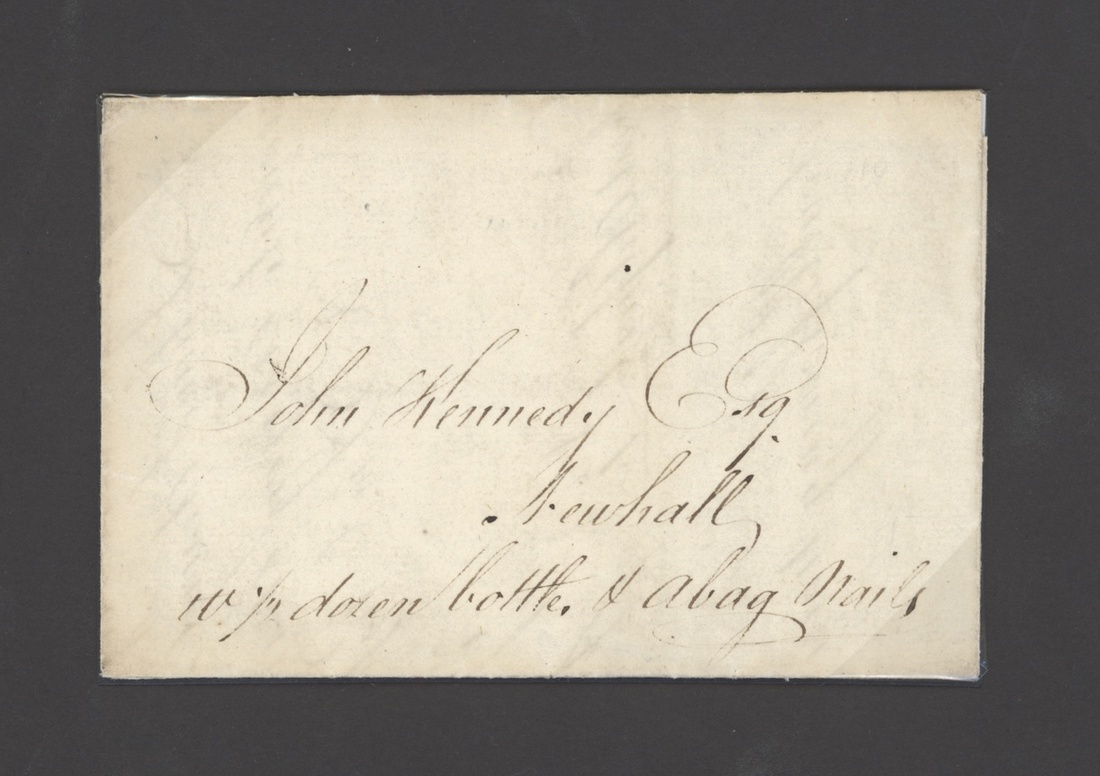 John Kennedy Esq
Newhall
w ½ dozen bottle, & a bag Nails